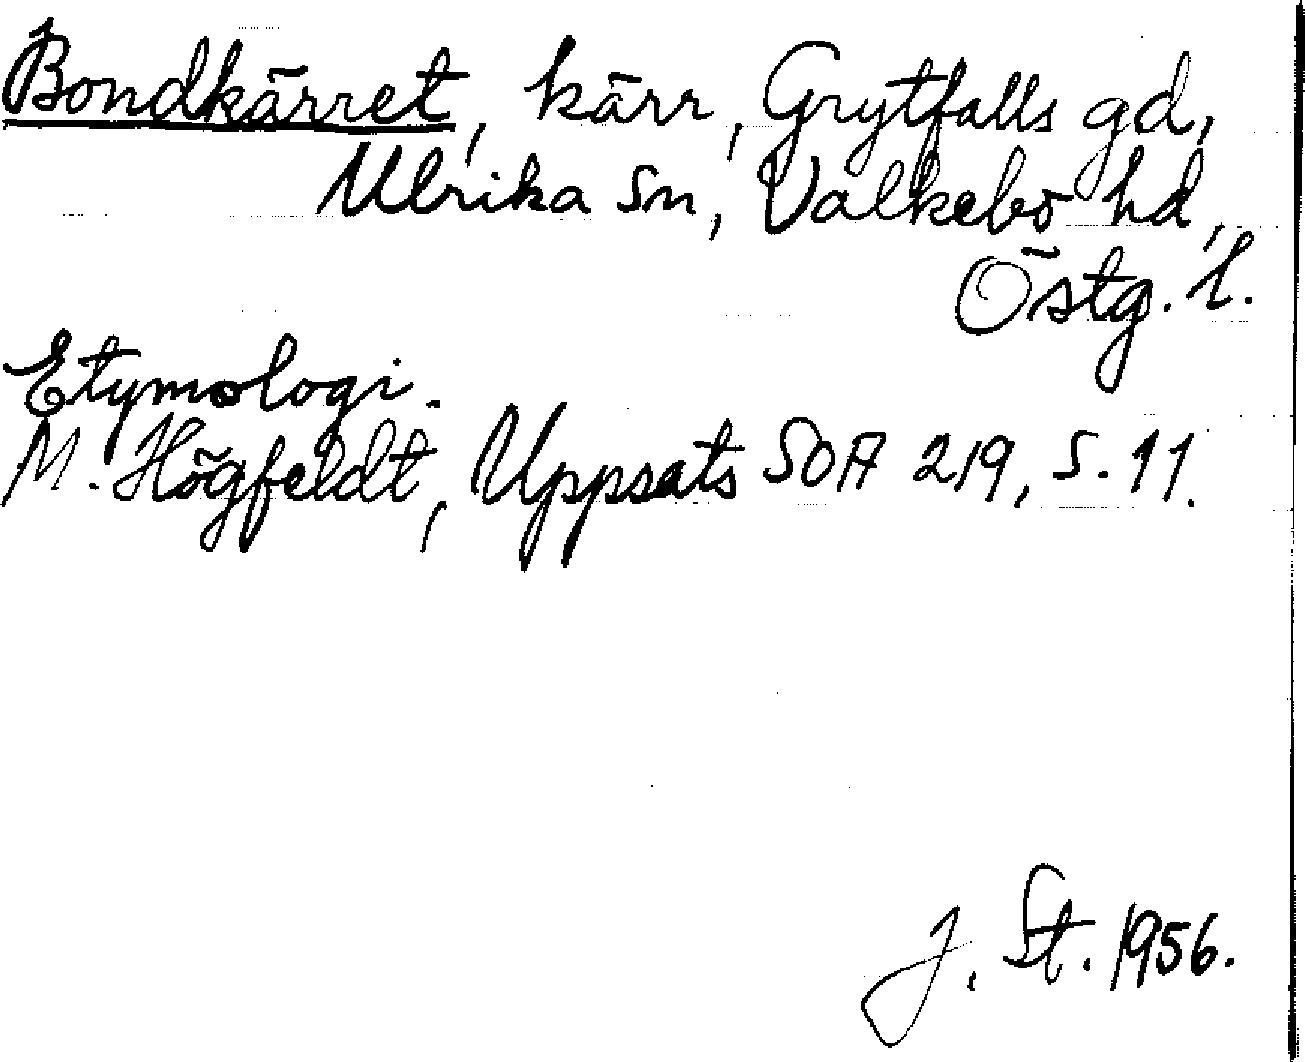 Bondkärret, kärr, Grytfalls gd,
Ulrika sn, Valkebo hd,
Östg. l.
Etymologi.
M. Högfeldt, Uppsats SOA 219, s. 11.
J. St. 1956.